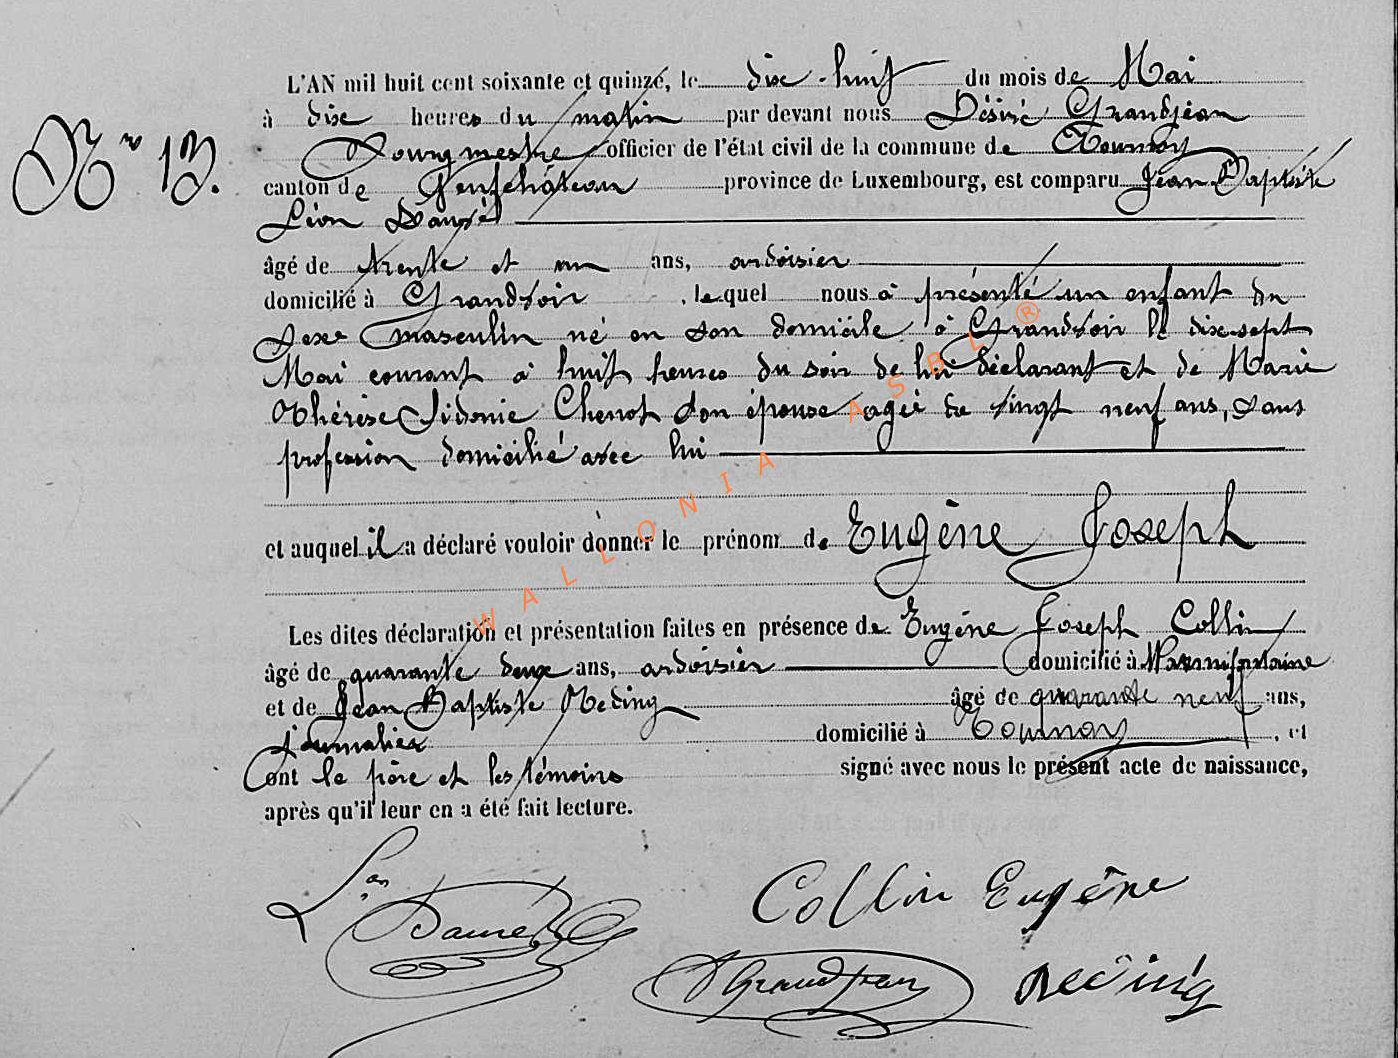 L'AN mil huit cent soixante et quinze, le dix-huit du mois de Mai
No 13.
à dix heures du matin par devant nous Désiré Grandjean
Bourgmestre officier de l'état civil de la commune de Tournay
canton de Neufchâteau province de Luxembourg, est comparu Jean Baptiste
Léon Dauré
âgé de trente et un ans, ardoisier
domicilié à Grandvoir, lequel nous a présenté un enfant du
sexe masculin né en son domicile à Grandvoir le dix-sept
Mai courant à huit heures du soir de lui déclarant et de Marie
Thérèse Sidonie Chenot son épouse agée de vingt neuf ans, sans
profession domicilié avec lui
et auquel il a déclaré vouloir donner le prénom de Eugène Joseph
Les dites déclaration et présentation faites en présence de Eugène Joseph Collin
âgé de quarante deux ans, ardoisier domicilié à Warmifontaine
et de Jean Baptiste Reding âgé de quarante neuf ans,
journalier domicilié à Tournay, et
ont le père et les témoins signé avec nous le présent acte de naissance,
après qu'il leur en a été fait lecture.
Lon Dauré
Collin Eugène
D Grandjean
Reding
WALLONIA ASBL ®